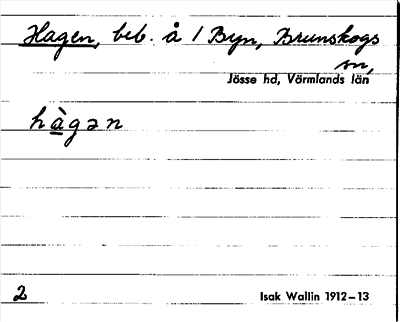 Hagen, beb. å 1 Byn, Brunskogs
sn,
Jösse hd, Värmlands län
hàgən
2
Isak Wallin 1912–13